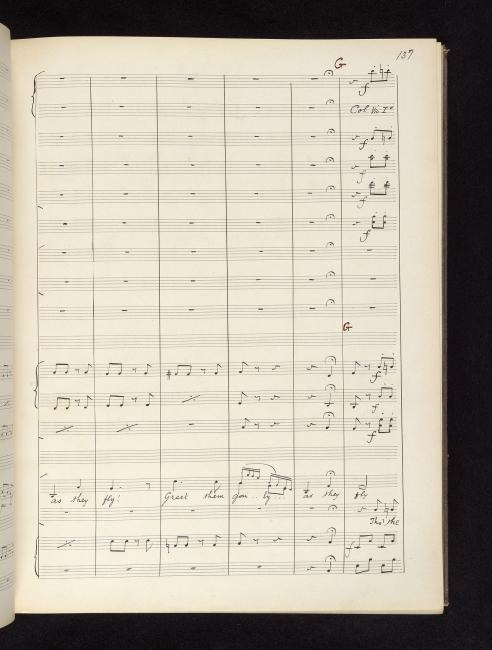 137
G
f
Col. Vn. I°
f
f
f
f
G
f
f
f
as they fly! Greet them gai - ly as they fly
Tho' the
f